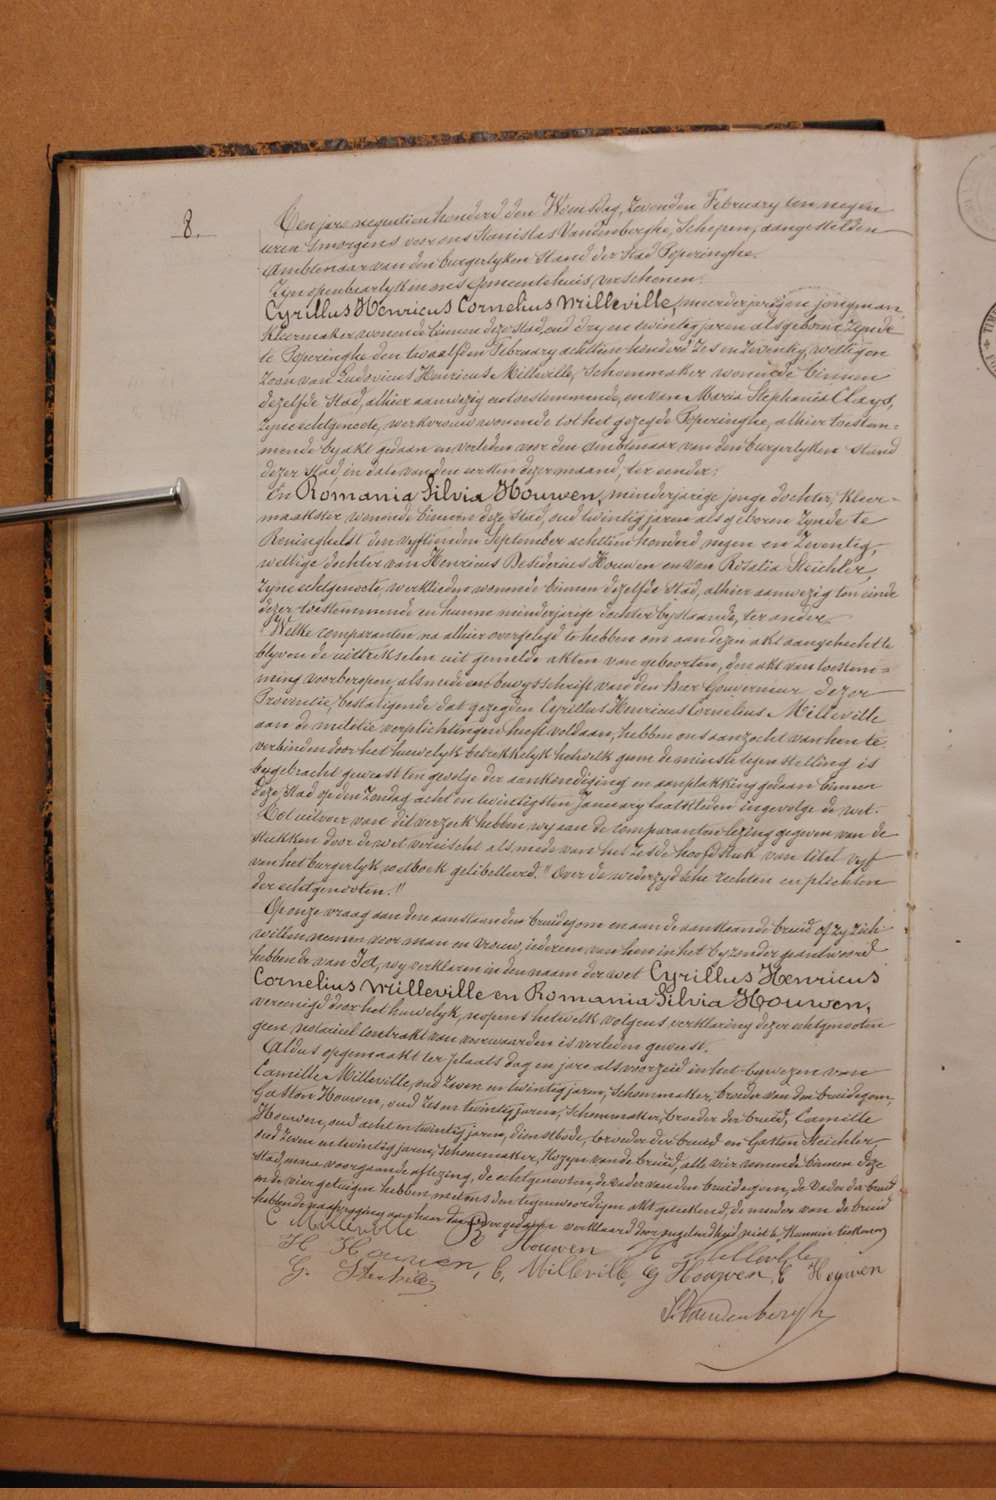 8.
Ten jare negentien honderd den Woensdag, zevenden February ten negen
uren smorgens voor ons Stanislas Vandenberghe, Schepen, aangestelden
Ambtenaar van den burgerlyken Stand der Stad Poperinghe.
Zyn openbaerlyk in ons Gemeentehuis verschenen:
Cyrillus Henricus Cornelius Milleville, meerderjarigen jongman,
kleermaker wonende binnen deze stad, oud dry en twintig jaren als geboren zynde
te Poperinghe den twaalfden February achttien honderd zes en zeventig, wettigen
zoon van Ludovicus Henricus Milleville, Schoenmaker wonende binnen
dezelfde Stad, alhier aanwezig en toestemmende, en van Maria Stephania Clays,
zyne echtgenoote, werkvrouw wonende tot het gezegde Poperinghe, alhier toestem=
mende by akt gedaan en verleden voor den Ambtenaar van den burgerlyken Stand
dezer Stad, in date van den dezer maand, ter eender;
En Romania Silvia Houwen, minderjarige jonge dochter, kleer=
maakster wonende binnen deze Stad, oud twintig jaren als geboren zynde te
Reninghelst den vyftienden September achttien honderd negen en zeventig,
wettige dochter van Henricus Desiderius Houwen en van Rosalia Steichler,
zyne echtgenoote, werklieden wonende binnen dezelfde Stad, alhier aanwezig ten einde
dezer toestemmende en hunne minderjarige dochter bystaande, ter andere.
Welke comparanten na alhier overgelegd te hebben om aan dezen akt aangehecht te
blyven de uittrekselen uit gemelde akten van geboorten, den akt van toestem=
ming voorberoepen, alsmede een bewysschrift van den heer Gouverneur dezer
Provintie, bestatigende dat gezegden Cyrillus Henricus Cornelius Milleville
aan de militie verplichtingen heeft voldaan, hebben ons aanzocht van hen te
verbinden door het huwelyk betrekkelyk hetwelk geene de minste tegenstelling is
bygebracht geweest ten gevolge der aankondiging en aanplakking gedaan binnen
deze Stad op den Zondag acht en twintigsten January laatstleden ingevolge de wet.
Tot uitvoer van dit verzoek hebben wy aan de comparanten lezing gegeven van de
stukken door de wet vereischt alsmede van het zesde hoofdstuk van titel vyf
van het burgerlyk wetboek getitelleerd: "Over de wederzydsche rechten en plichten
der echtgenooten."
Op onze vraag aan den aanstaanden bruidegom en aan de aanstaande bruid of zy zich
willen nemen voor man en vrouw, iedereen van hen in het byzonder geantwoord
hebbende van Ja, wy verklaren in den naam der wet Cyrillus Henricus
Cornelius Milleville en Romania Silvia Houwen,
vereenigd door het huwelyk, nopens hetwelk volgens verklaring dezer echtgenooten
geen notarieel contrakt van voorwaarden is verleden geweest.
Aldus opgemaakt ter plaats dag en jare als voorzeid in het bywezen van
Camille Milleville, oud zeven en twintig jaren, Schoenmaker, broeder van den bruidegom,
Gaston Houwen, oud zes en twintig jaren, Schoenmaker, broeder der bruid, Camille
Houwen, oud acht en twintig jaren, dienstbode, broeder der bruid en Gaston Steichler,
oud zeven en twintig jaren, Schoenmaker, Kozyn van de bruid, alle vier wonende binnen deze
Stad, en na voorgaande aflezing, de echtgenooten, de vader van den bruidegom, de Vader der bruid
en de vier getuigen hebben met ons den tegenwoordigen akt geteekend; de moeder van de bruid
hebbende naar haar gedaan verklaard door ongeleerdheid niet te Kunnen teekenen.
C Milleville R Houwen H Milleville
H Houwen, C, Milleville, G Houwen, C Houwen
G. Steichler
S. Vandenberghe